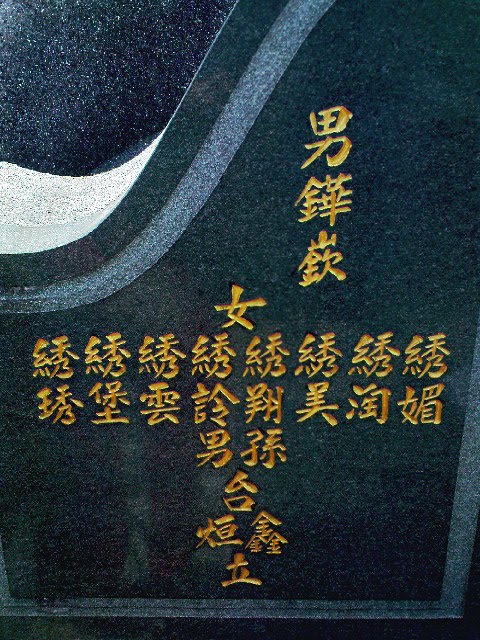 男鏵嶔
女
綉媚
綉美
綉翔
綉詅
綉雲
綉堡
綉琇
孫男
台
鑫
烜
立